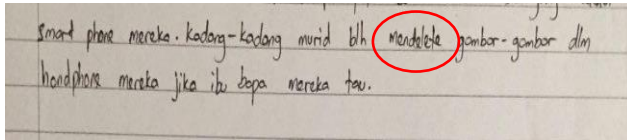 smart phone mereka. Kadang-kadang murid blh mendelete gambar-gambar dlm
handphone mereka jika ibu bapa mereka tau.